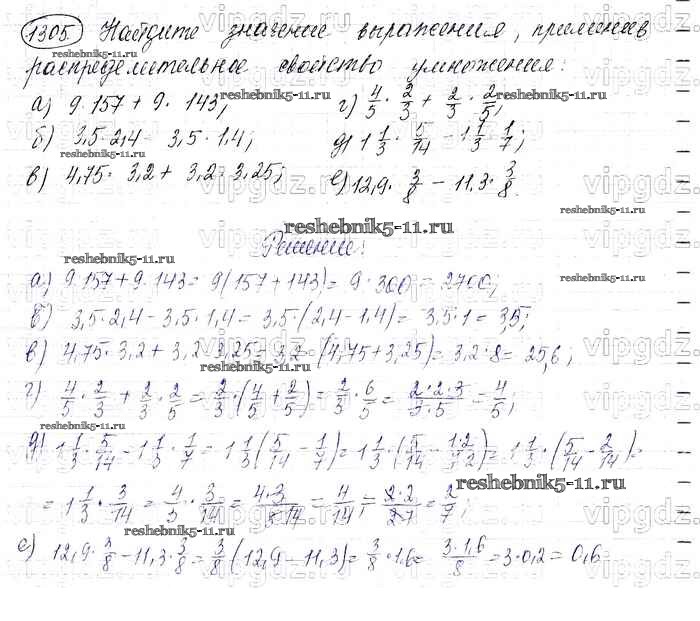 1305 Найдите значение выражения, применив
распределительное свойство умножения:
а) 9·157 + 9·143; г) 4/5 · 2/3 + 2/3 · 2/5;
б) 3,5·2,4 - 3,5·1,4; д) 1 1/3 · 5/14 - 1 1/3 · 1/7;
в) 4,75·3,2 + 3,2·3,25; е) 12,9 · 3/8 - 11,3 · 3/8.
Решение:
а) 9·157+9·143 = 9(157+143) = 9·300 = 2700;
б) 3,5·2,4 - 3,5·1,4 = 3,5·(2,4-1,4) = 3,5·1 = 3,5;
в) 4,75·3,2 + 3,2·3,25 = 3,2·(4,75+3,25) = 3,2·8 = 25,6;
г) 4/5 · 2/3 + 2/3 · 2/5 = 2/3 · (4/5 + 2/5) = 2/3 · 6/5 = 2·2·3/3·5 = 4/5;
д) 1 1/3 · 5/14 - 1 1/3 · 1/7 = 1 1/3 (5/14 - 1/7) = 1 1/3 · (5/14 - 1·2/7·2) = 1 1/3 · (5/14 - 2/14) =
= 1 1/3 · 3/14 = 4/3 · 3/14 = 4·3/3·14 = 4/14 = 2·2/2·7 = 2/7;
е) 12,9 · 3/8 - 11,3 · 3/8 = 3/8 (12,9 - 11,3) = 3/8 · 1,6 = 3·1,6/8 = 3·0,2 = 0,6
reshebnik5-11.ru
vipgdz.ru